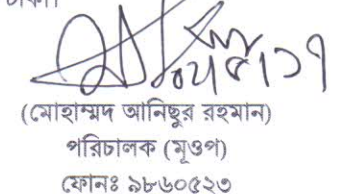 ঢাকা।
০২/৫/১৭
(মোহাম্মদ আনিছুর রহমান)
পরিচালক (মূওপ)
ফোনঃ ৯৮৬০৫২৩